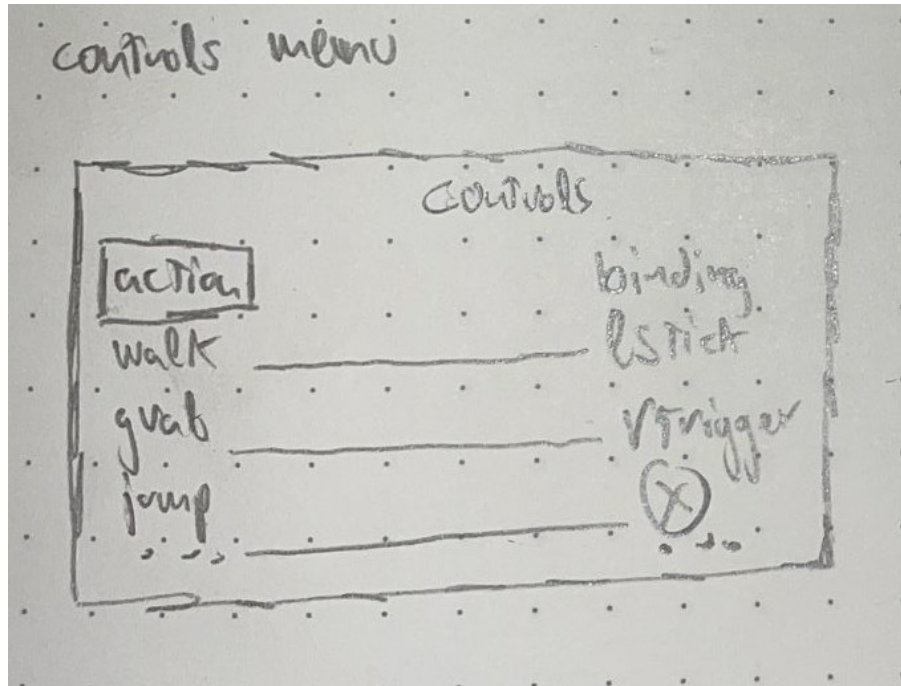 controls menu
controls
action binding
walk lstick
grab rtrigger
jump X
... ...